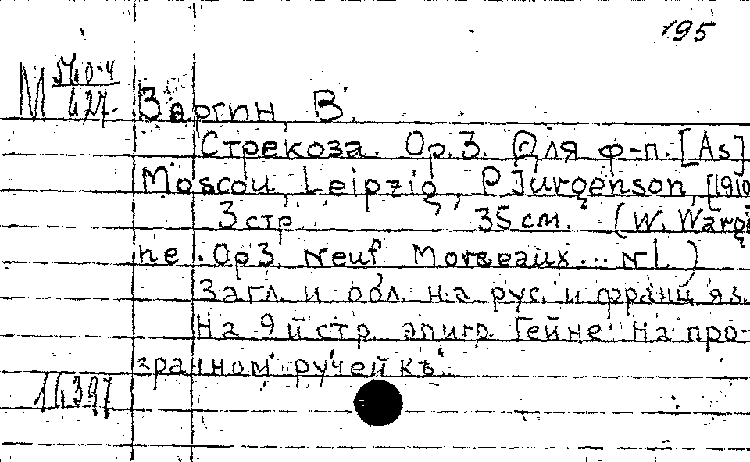 195
М 540-4
427
Варгин, В.
Стрекоза. Ор.3. Для ф-п. [As]
Moscou, Leipzig, P. Jurgenson, [1910
3 стр. 35 см. (W. Wargi
ne. Op 3. Neuf Morseaux... N 1.)
Загл. и обл. на рус. и франц яз.
На 9й стр. эпигр. Гейне "На про-
зрачном ручейкъ".